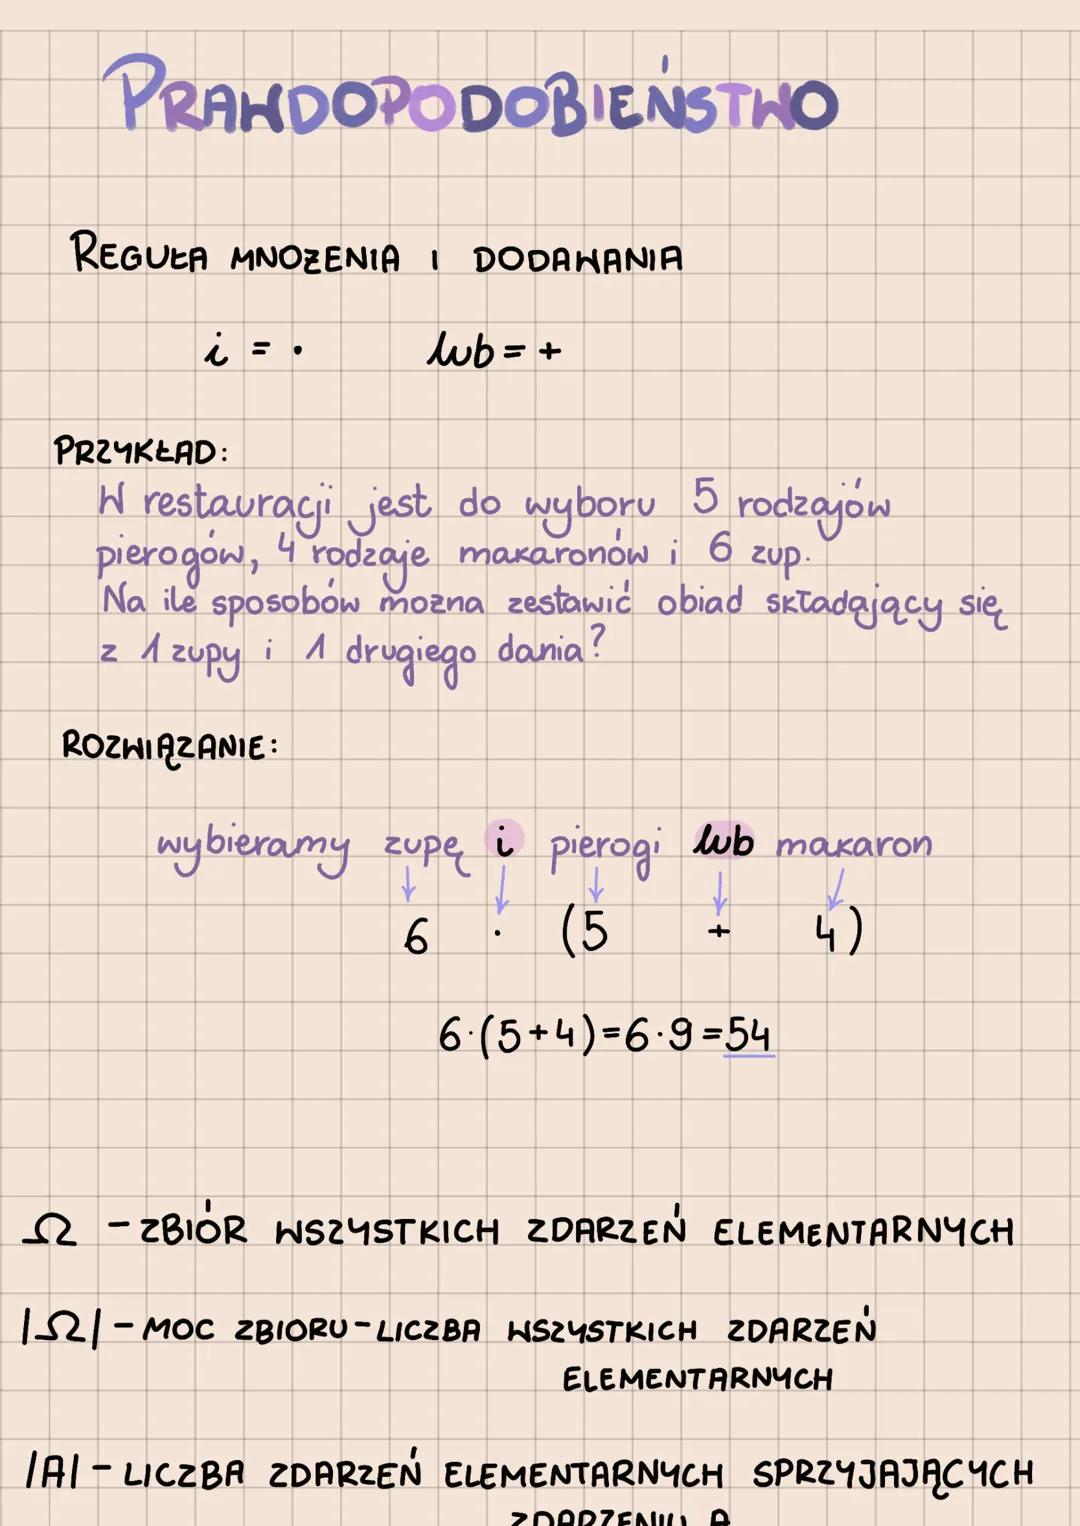 PRAWDOPODOBIEŃSTWO
REGUŁA MNOŻENIA I DODAWANIA
i = · lub = +
PRZYKŁAD:
W restauracji jest do wyboru 5 rodzajów
pierogów, 4 rodzaje makaronów i 6 zup.
Na ile sposobów można zestawić obiad składający się
z 1 zupy i 1 drugiego dania?
ROZWIĄZANIE:
wybieramy zupę i pierogi lub makaron
↓ ↓ ↓ ↓ ↓
6 · (5 + 4)
6·(5+4)=6·9=54
Ω - ZBIÓR WSZYSTKICH ZDARZEŃ ELEMENTARNYCH
|Ω| - MOC ZBIORU - LICZBA WSZYSTKICH ZDARZEŃ
ELEMENTARNYCH
|A| - LICZBA ZDARZEŃ ELEMENTARNYCH SPRZYJAJĄCYCH
ZDARZENIU A